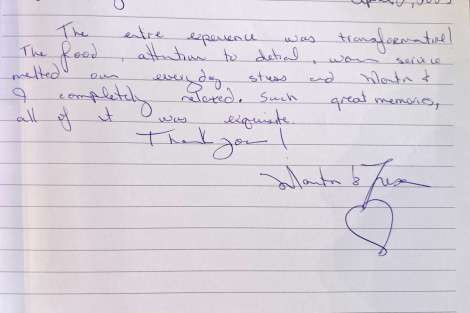 The entire experience was transformative!
The food, attention to detial, warm service
melted our everyday stress and &
I completely relaxed. Such great memories,
all of it was exquisite.
Thank you!
&